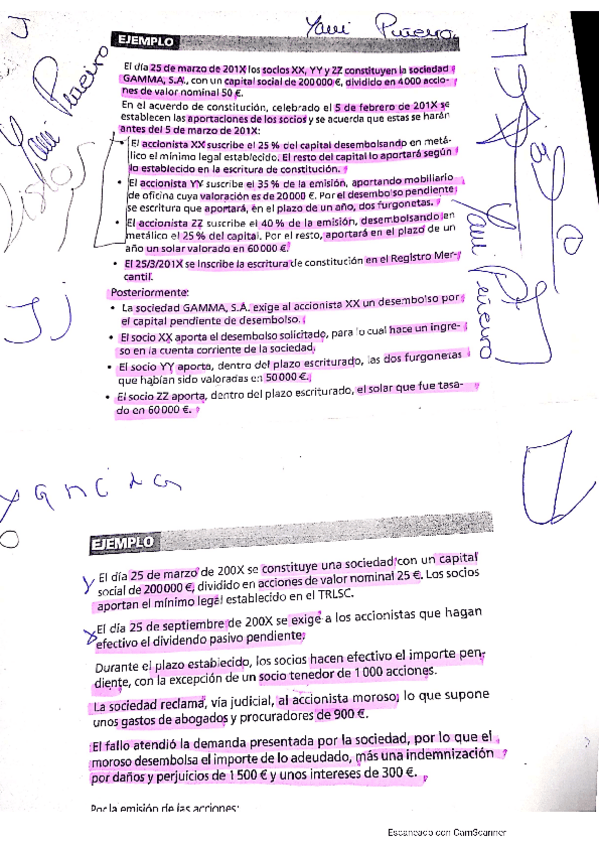 Yami Piñeiro
J
EJEMPLO
El día 25 de marzo de 201X los socios XX, YY y ZZ constituyen la sociedad
GAMMA, S.A., con un capital social de 200 000 €, dividido en 4 000 accio-
nes de valor nominal 50 €.
En el acuerdo de constitución, celebrado el 5 de febrero de 201X se
establecen las aportaciones de los socios y se acuerda que estas se harán
antes del 5 de marzo de 201X:
• El accionista XX suscribe el 25 % del capital desembolsando en metá-
lico el mínimo legal establecido. El resto del capital lo aportará según
lo establecido en la escritura de constitución.
• El accionista YY suscribe el 35 % de la emisión, aportando mobiliario
de oficina cuya valoración es de 20 000 €. Por el desembolso pendiente
se escritura que aportará, en el plazo de un año, dos furgonetas.
• El accionista ZZ suscribe el 40 % de la emisión, desembolsando en
metálico el 25 % del capital. Por el resto, aportará en el plazo de un
año un solar valorado en 60 000 €.
• El 25/3/201X se inscribe la escritura de constitución en el Registro Mer-
cantil.
Posteriormente:
• La sociedad GAMMA, S.A. exige al accionista XX un desembolso por
el capital pendiente de desembolso.
• El socio XX aporta el desembolso solicitado, para lo cual hace un ingre-
so en la cuenta corriente de la sociedad.
• El socio YY aporta, dentro del plazo escriturado, las dos furgonetas
que habían sido valoradas en 50 000 €.
• El socio ZZ aporta, dentro del plazo escriturado, el solar que fue tasa-
do en 60 000 €.
Yami Piñeiro
Yami Piñeiro
J j
EJEMPLO
El día 25 de marzo de 200X se constituye una sociedad con un capital
social de 200 000 €, dividido en acciones de valor nominal 25 €. Los socios
aportan el mínimo legal establecido en el TRLSC.
El día 25 de septiembre de 200X se exige a los accionistas que hagan
efectivo el dividendo pasivo pendiente.
Durante el plazo establecido, los socios hacen efectivo el importe pen-
diente, con la excepción de un socio tenedor de 1 000 acciones.
La sociedad reclama, vía judicial, al accionista moroso, lo que supone
unos gastos de abogados y procuradores de 900 €.
El fallo atendió la demanda presentada por la sociedad, por lo que el
moroso desembolsa el importe de lo adeudado, más una indemnización
por daños y perjuicios de 1 500 € y unos intereses de 300 €.
Por la emisión de las acciones:
Escaneado con CamScanner